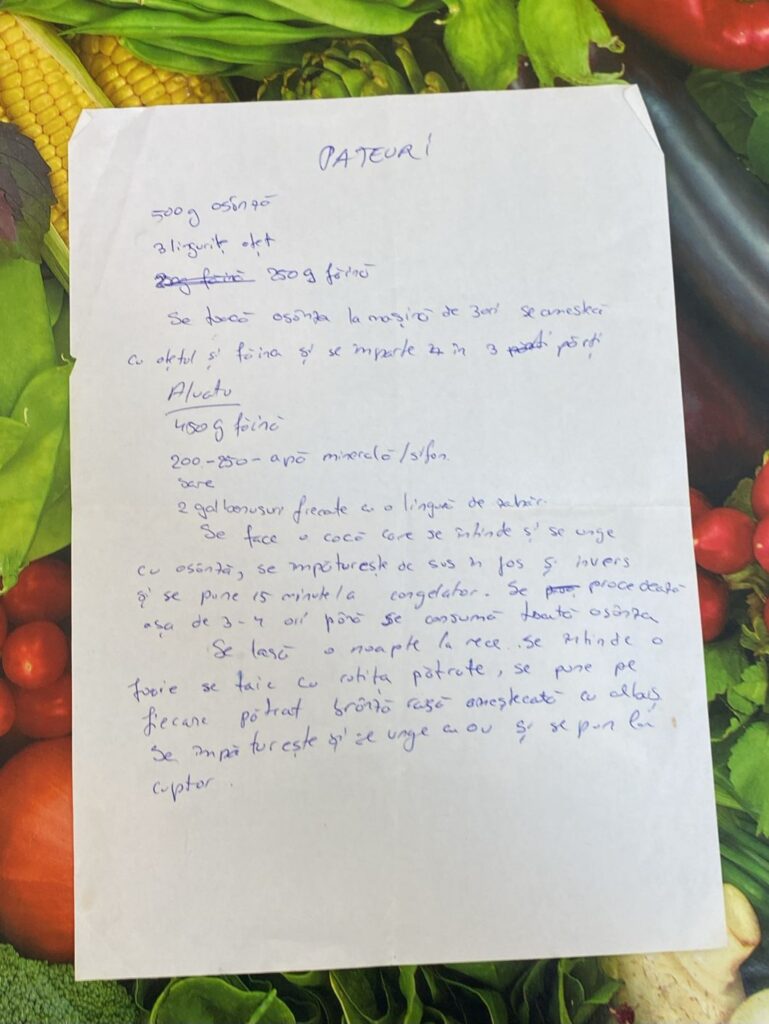 PATEURI
500g osânză
3 lingurițe oțet
250 g făină
Se toacă osânza la mașină de 3 ori se amestecă
cu oțetul și făina și se împarte în 3 părți
Aluatu
450 g făină
200-250- apă minerală/sifon.
sare
2 galbenușuri frecate cu o lingură de zahăr.
Se face o cocă care se întinde și se unge
cu osânză, se împăturește de sus în jos și invers
și se pune 15 minute la congelator. Se procedează
așa de 3-4 ori până se consumă toată osânza
Se lasă o noapte la rece. Se întinde o
foaie se taie cu rotița pătrate, se pune pe
fiecare pătrat brânză rasă amestecată cu albuș
Se împăturește și se unge cu ou și se pun la
cuptor.